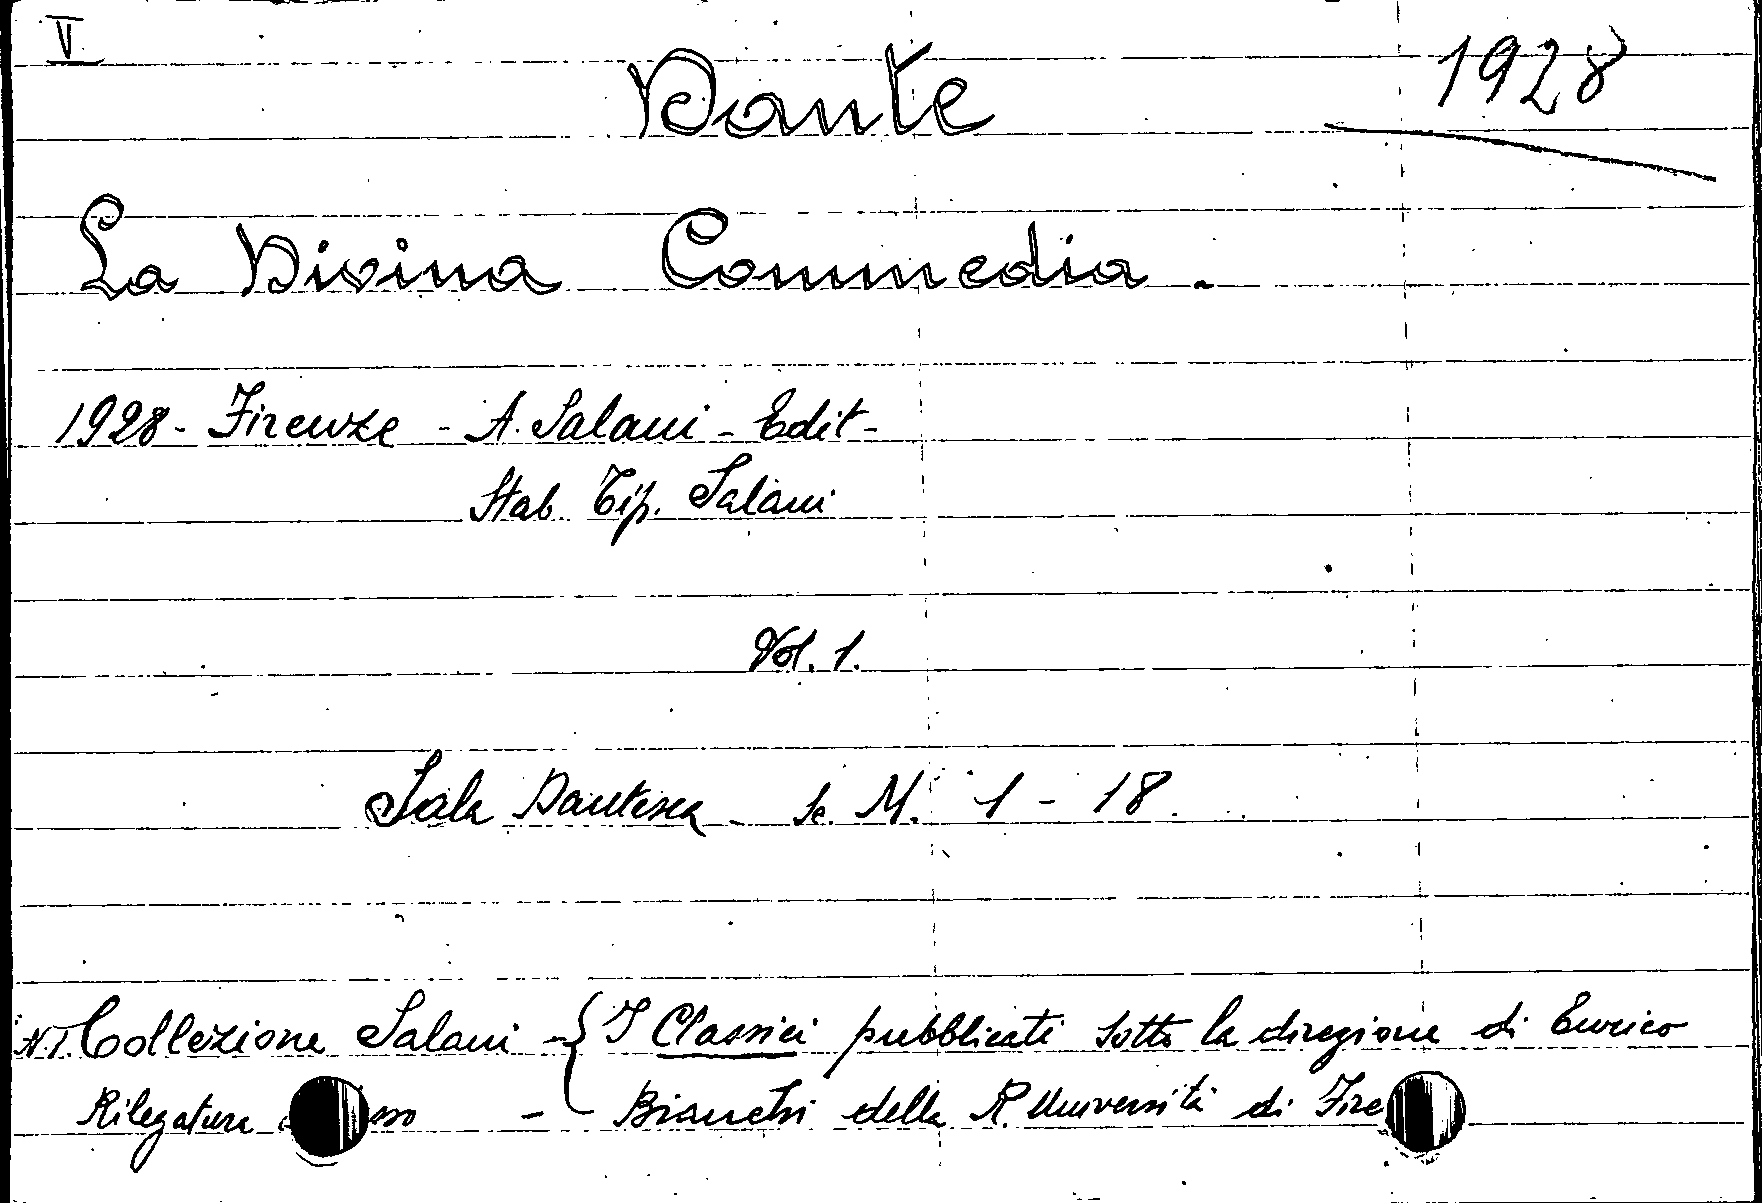 V
Dante 1928
La Divina Commedia.
1928 - Firenze - A. Salani - Edit -
Stab. Tip. Salani
Vol. 1.
Sala Dantesca - sc. M. 1 - 18.
N.1. Collezione Salani - { I Classici pubblicati sotto la direzione di Enrico
Rilegatura - Bianchi della R. Università di Fire